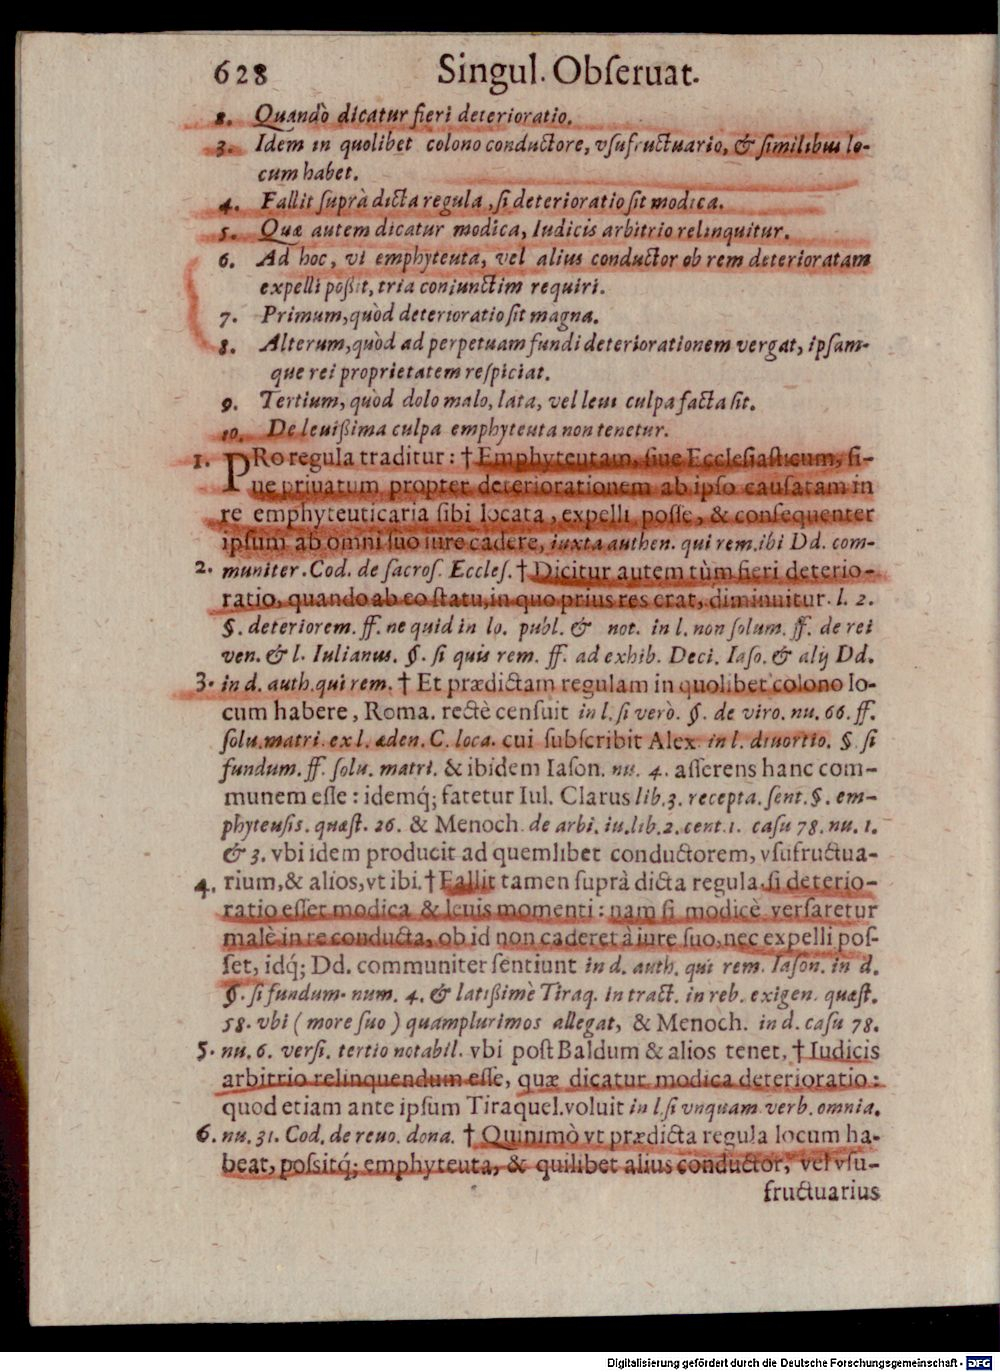 628 Singul. Obſeruat.
2. Quandò dicatur fieri deterioratio.
3. Idem in quolibet colono conductore, vſufructuario, & ſimilibus lo-
cum habet.
4. Fallit ſuprà dicta regula, ſi deterioratio ſit modica.
5. Quæ autem dicatur modica, Iudicis arbitrio relinquitur.
6. Ad hoc, vt emphyteuta, vel alius conductor ob rem deterioratam
expelli poßit, tria coniunctim requiri.
7. Primum, quòd deterioratio ſit magna.
8. Alterum, quòd ad perpetuam fundi deteriorationem vergat, ipſam-
que rei proprietatem reſpiciat.
9. Tertium, quòd dolo malo, lata, vel leui culpa facta ſit.
10. De leuißima culpa emphyteuta non tenetur.
1. PRo regula traditur: † Emphyteutam, ſiue Eccleſiaſticum, ſi-
ue priuatum propter deteriorationem ab ipſo cauſatam in
re emphyteuticaria ſibi locata, expelli poſſe, & conſequenter
ipſum ab omni ſuo iure cadere, iuxta authen. qui rem. ibi Dd. com-
2. muniter. Cod. de ſacroſ. Eccleſ. † Dicitur autem tùm fieri deterio-
ratio, quando ab eo ſtatu, in quo prius res erat, diminuitur. l. 2.
§. deteriorem. ff. ne quid in lo. publ. & not. in l. non ſolum. ff. de rei
ven. & l. Iulianus. §. ſi quis rem. ff. ad exhib. Deci. Iaſo. & alij Dd.
3. in d. auth. qui rem. † Et prædictam regulam in quolibet colono lo-
cum habere, Roma. rectè cenſuit in l. ſi verò. §. de viro. nu. 66. ff.
ſolu. matri. ex l. æden. C. loca. cui ſubſcribit Alex. in l. diuortio. §. ſi
fundum. ff. ſolu. matri. & ibidem Iaſon. nu. 4. aſſerens hanc com-
munem eſſe: idemq́; fatetur Iul. Clarus lib. 3. recepta. ſent. §. em-
phyteuſis. quæſt. 26. & Menoch. de arbi. iu. lib. 2. cent. 1. caſu 78. nu. 1.
& 3. vbi idem producit ad quemlibet conductorem, vſufructua-
4. rium, & alios, vt ibi. † Fallit tamen ſuprà dicta regula, ſi deterio-
ratio eſſet modica & leuis momenti: nam ſi modicè verſaretur
malè in re conducta, ob id non caderet à iure ſuo, nec expelli poſ-
ſet, idq́; Dd. communiter ſentiunt in d. auth. qui rem. Iaſon. in d.
§. ſi fundum. num. 4. & latißimè Tiraq. in tract. in reb. exigen. quæſt.
58. vbi (more ſuo) quamplurimos allegat, & Menoch. in d. caſu 78.
5. nu. 6. verſi. tertio notabil. vbi poſt Baldum & alios tenet, † Iudicis
arbitrio relinquendum eſſe, quæ dicatur modica deterioratio:
quod etiam ante ipſum Tiraquel. voluit in l. ſi vnquam. verb. omnia.
6. nu. 31. Cod. de reuo. dona. † Quinimò vt prædicta regula locum ha-
beat, poſſitq́; emphyteuta, & quilibet alius conductor, vel vſu-
fructuarius
Digitalisierung gefördert durch die Deutsche Forschungsgemeinschaft - DFG